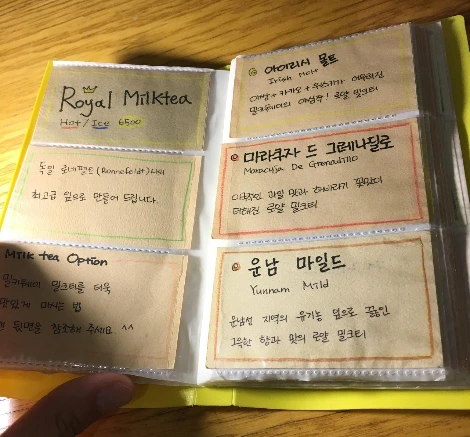 Royal Milktea
Hot / Ice 6500
독일 로네펠트 (Ronnefeldt)사의
최고급 잎으로 만들어 드립니다.
Milk tea Option
밀크티를 더욱
맛있게 마시는 법
뒷면을 참조해 주세요 ^^
아이리시 몰트
Irish Malt
카카오 + 위스키가 어우러진
로얄 밀크티
마라쿠자 드 그레나딜로
Maracuja De Grenadillo
과일 맛과 해바라기 꽃잎이
더해진 로얄 밀크티
운남 마일드
Yunnam Mild
운남성 지역의 유기농 잎으로 끓인
그윽한 향과 맛의 로얄 밀크티